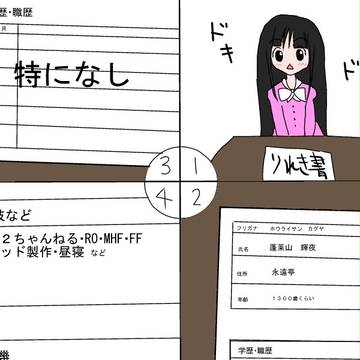 ドキ
ド
りれき書
1
2
3
4
フリガナ ホウライサン カグヤ
氏名 蓬莱山 輝夜
住所 永遠亭
年齢 1300歳くらい
学歴・職歴
歴・職歴
特になし
技など
2ちゃんねる・RO・MHF・FF
ッド製作・昼寝 など
機